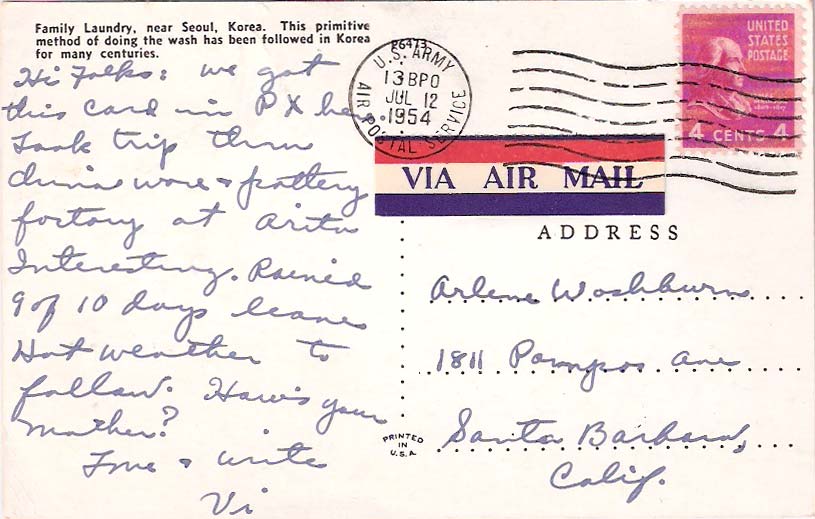 Family Laundry, near Seoul, Korea. This primitive
method of doing the wash has been followed in Korea
for many centuries.
Hi Folks: We got
this card in PX here.
Took trip thru
china ware & pottery
factory at Arita
Interesting. Rained
9 of 10 days leave
Hot weather to
follow. How's your
mother?
Love & write
Vi
U.S. ARMY
13 BPO
JUL 12
1954
AIR POSTAL SERVICE
UNITED
STATES
POSTAGE
4 CENTS 4
VIA AIR MAIL
ADDRESS
Arlene Washburn
1811 Pampas Ave
Santa Barbara,
Calif.
PRINTED
IN
U.S.A.